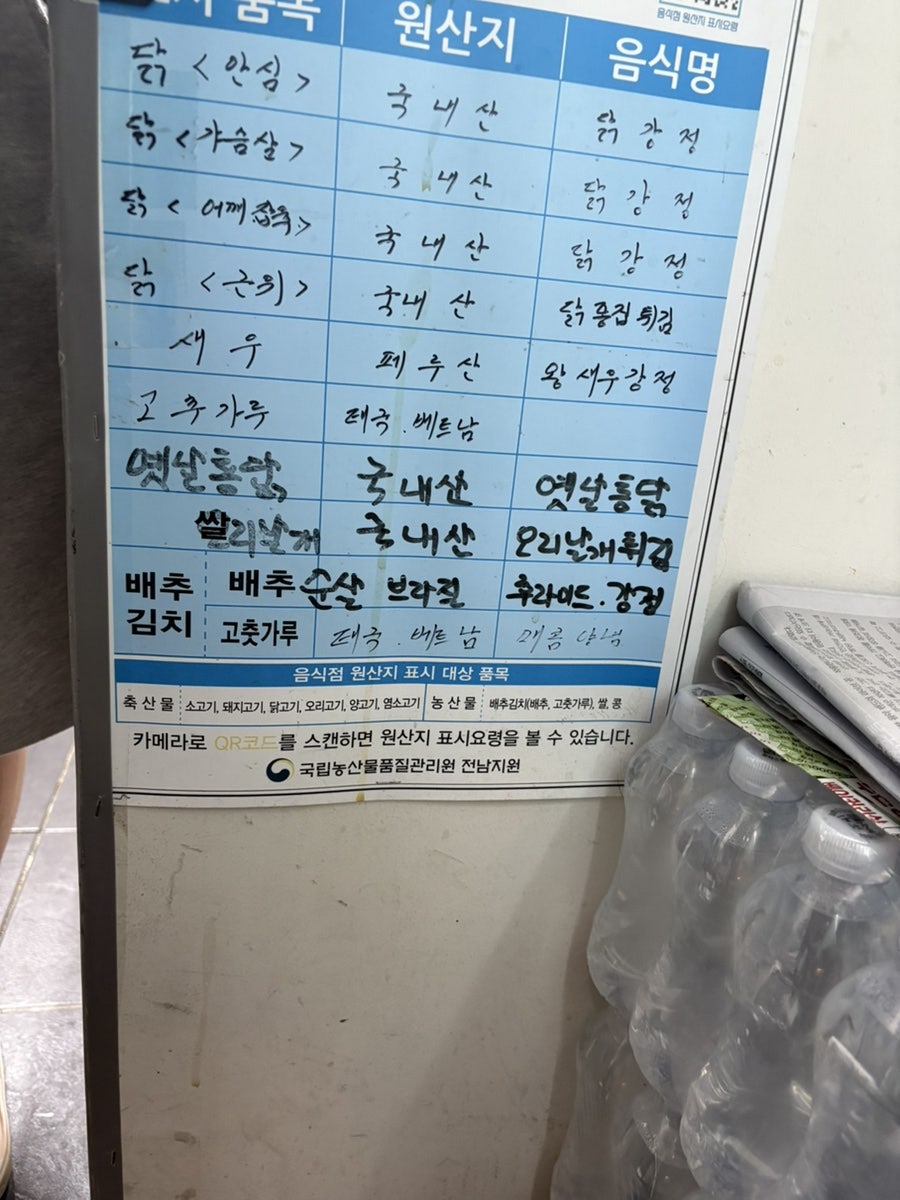 음식점 원산지 표시요령
품목 원산지 음식명
닭 <안심> 국내산 닭강정
닭 <가슴살> 국내산 닭강정
닭 <어깨 > 국내산 닭강정
닭 <근위> 국내산 닭똥집 튀김
새우 페루산 왕새우강정
고추가루 태국.베트남
옛날통닭 국내산 옛날통닭
리날개 국내산 오리날개튀김
배추김치 배추 순살 브라질 후라이드.강정
고춧가루 태국.베트남 매콤
음식점 원산지 표시 대상 품목
축산물 소고기, 돼지고기, 닭고기, 오리고기, 양고기, 염소고기 농산물 배추김치(배추, 고춧가루), 쌀, 콩
카메라로 QR코드를 스캔하면 원산지 표시요령을 볼 수 있습니다.
국립농산물품질관리원 전남지원